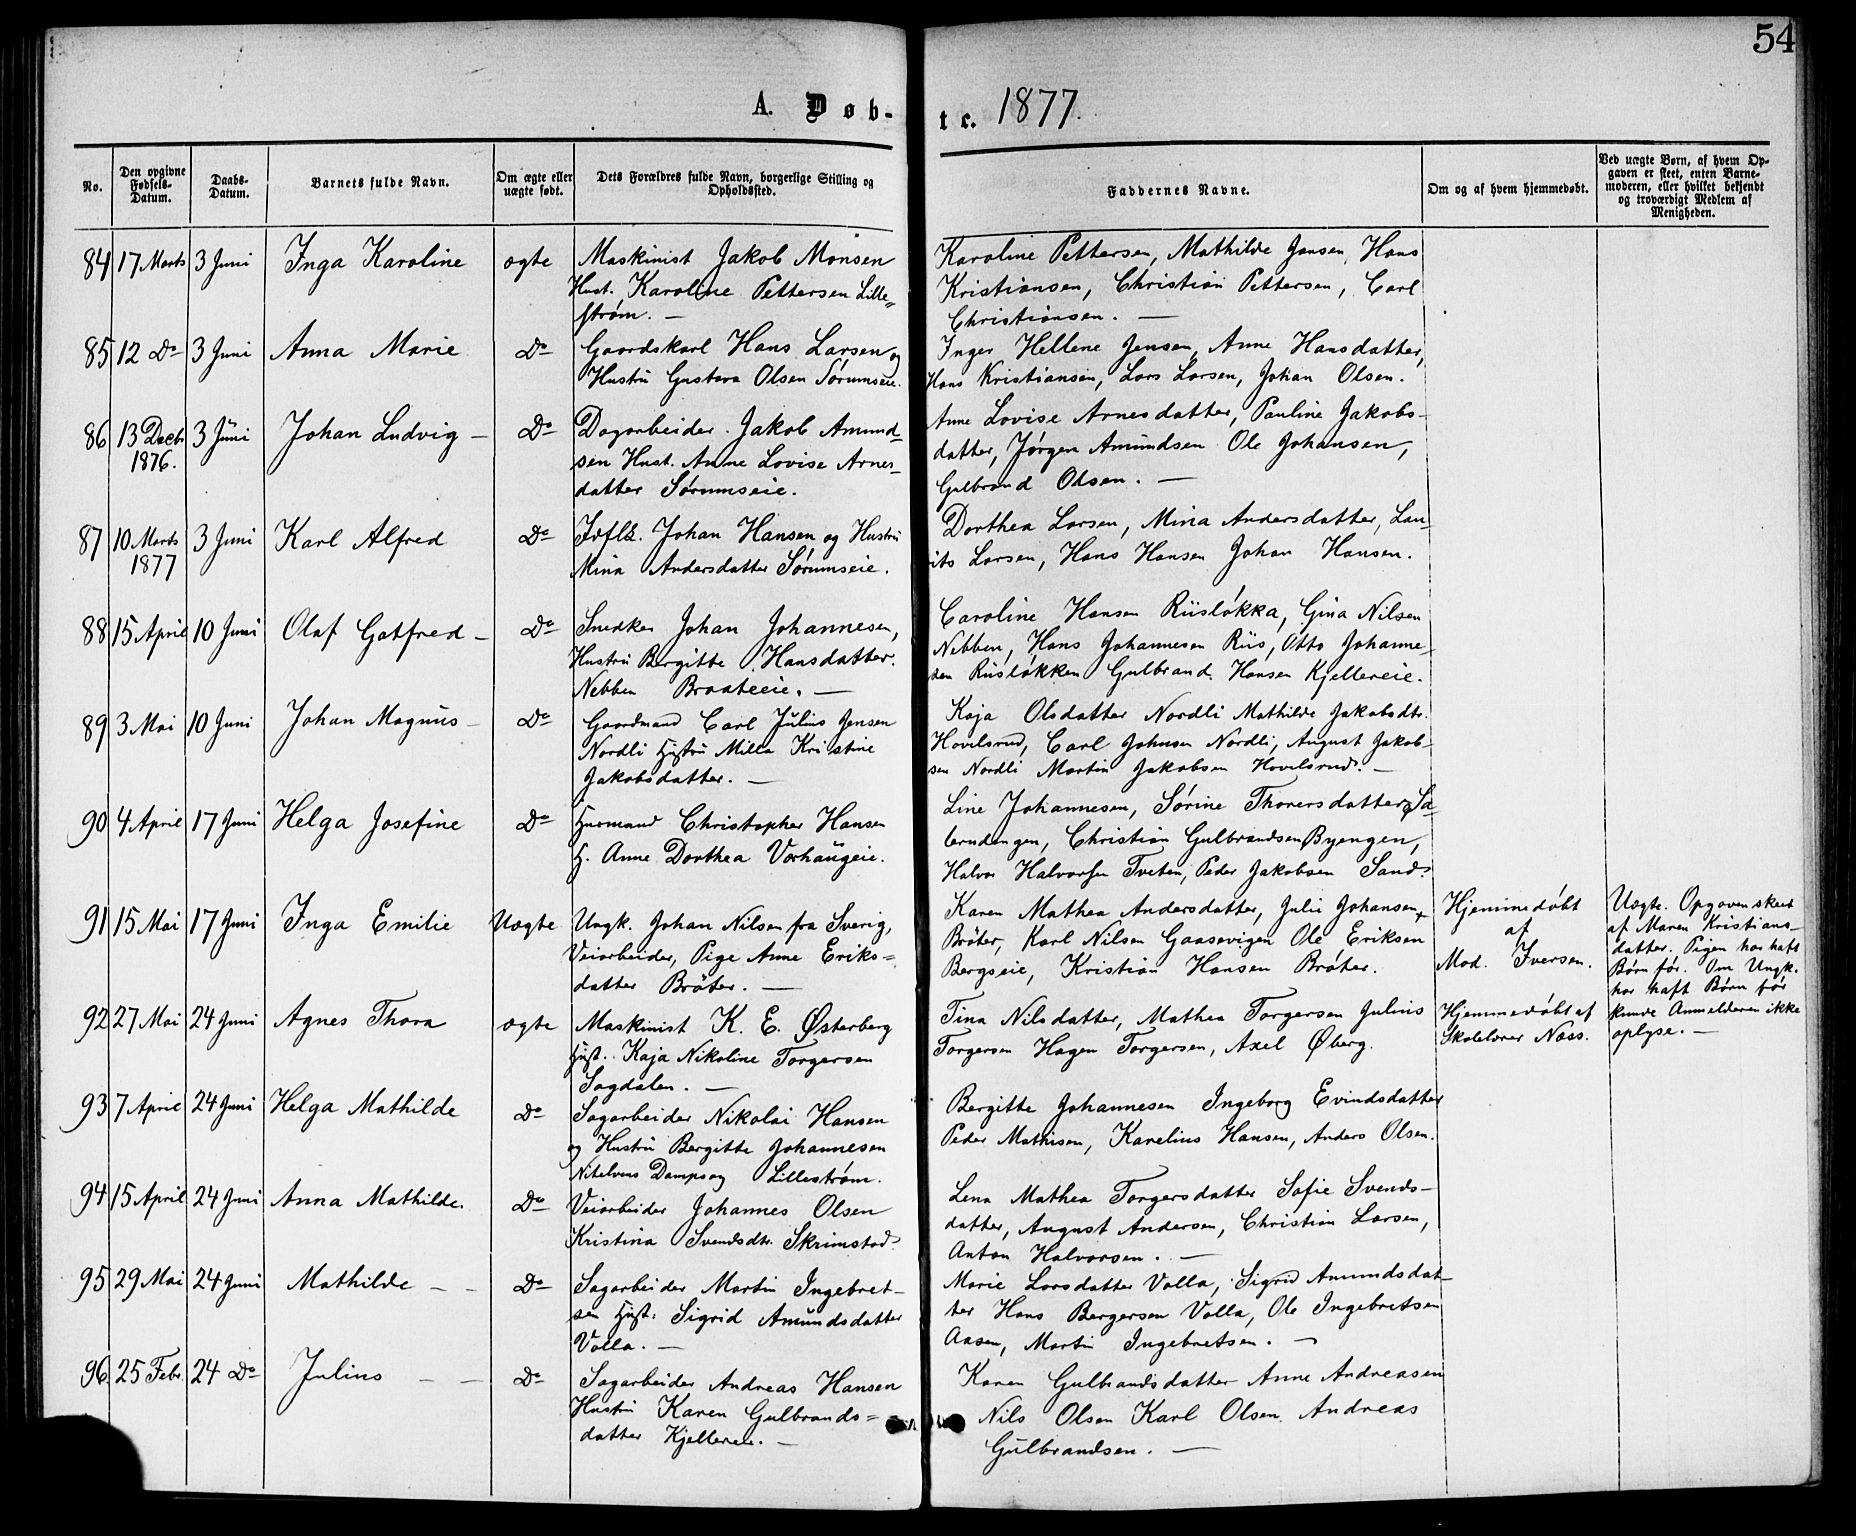 54
A. Døb-
te. 1877.
No.
Den opgivne
Fødsels-
Datum.
Daabs-
Datum.
Barnets fulde Navn.
Om ægte eller
uægte født.
Dets Forældres fulde Navn, borgerlige Stilling og
Opholdssted.
Faddernes Navne.
Om og af hvem hjemmedøbt.
Ved uægte Børn, af hvem Op-
gaven er skeet, enten Barne-
moderen, eller hvilket bekjendt
og troværdigt Medlem af
Menigheden.
84 17 Marts 3 Juni Inga Karoline ægte Maskinist Jakob Monsen
Hust. Karoline Pettersen Lille-
strøm. —
Karoline Pettersen, Mathilde Jensen, Hans
Kristiansen, Christian Pettersen, Carl
Christiansen. —
85 12 Do 3 Juni Anna Marie Do Gaardskarl Hans Larsen og
Hustru Gustava Olsen Sørumseie.
Inger Hellene Jensen, Anne Hansdatter,
Hans Kristiansen, Lars Larsen, Johan Olsen.
86 13 Decbr 3 Juni Johan Ludvig — Do Dagarbeider Jakob Amund-
1876.
sen Hust. Anne Lovise Arnes-
datter Sørumseie.
Anne Lovise Arnesdatter, Pauline Jakobs-
datter, Jørgen Amundsen Ole Johansen,
Gulbrand Olsen. —
87 10 Marts 3 Juni Karl Alfred Do Indflt. Johan Hansen og Hustru
1877
Mina Andersdatter Sørumseie.
Dorthea Larsen, Mina Andersdatter, Lau-
rits Larsen, Hans Hansen Johan Hansen.
88 15 April 10 Juni Olaf Gotfred — Do Snedker Johan Johannesen,
Hustru Bergitte Hansdatter.
Nebben Braateeie. —
Caroline Hansen Riisløkka, Gina Nilsen
Nebben, Hans Johannesen Riis, Otto Johanne-
sen Riisløkken Gulbrand Hansen Kjellereie.
89 3 Mai 10 Juni Johan Magnus — Do Gaardmand Carl Julius Jensen
Nordli Hustru Milla Kristine
Jakobsdatter. —
Kaja Olsdatter Nordli Mathilde Jakobsdtr.
Hovelsrud, Carl Johnsen Nordli, August Jakob-
sen Nordli Martin Jakobsen Hovelsrud. —
90 4 April 17 Juni Helga Josefine Do Husmand Christopher Hansen
H. Anne Dorthea Vorhaugeie.
Line Johannesen, Sørine Thoversdatter
Christian Gulbrandsen Byengen,
Halvor Halvorsen Tveten, Peder Jakobsen Sand.
91 15 Mai 17 Juni Inga Emilie Uægte Ungk. Johan Nilsen fra Sverig,
Veiarbeider, Pige Anne Eriks-
datter Brøter. —
Karen Mathea Andersdatter, Julie Johansen
Brøter, Karl Nilsen Gaasevigen Ole Eriksen
Bergseie, Kristian Hansen Brøter.
Hjemmedøbt
af
Mad. Iversen.
Uægte. Opgaven skeet
af Maren Kristians-
datter. Pigen har haft
Børn før. Om Ungk.
har haft Børn før
kunde Anmelderen ikke
oplyse. —
92 27 Mai 24 Juni Agnes Thora ægte Maskinist K. E. Østerberg
Hust. Kaja Nikoline Torgersen
Sagdalen. —
Tina Nilsdatter, Mathea Torgersen Julius
Torgersen Hagen Torgersen, Axel Øberg.
Hjemmedøbt af
Skolelærer Næss.
93 7 April 24 Juni Helga Mathilde Do Sagarbeider Nikolai Hansen
og Hustru Bergitte Johannesen
Nitelvens Dampsag Lillestrøm.
Bergitte Johannesen Ingeborg Evindsdatter
Peder Mathisen, Karelius Hansen, Anders Olsen.
94 15 April 24 Juni Anna Mathilde. Do Veiarbeider Johannes Olsen
Kristina Svendsdtr. Skrimstad.
Lena Mathea Torgersdatter Sofie Svends-
datter, August Andersen, Christian Larsen,
Anton Halvorsen. —
95 29 Mai 24 Juni Mathilde — — Do Sagarbeider Martin Ingebret-
sen Hust: Sigrid Amundsdatter
Volla. —
Marie Larsdatter Volla, Sigrid Amundsdat-
ter Hans Bergersen Volla, Ole Ingebretsen
Aasen, Martin Ingebretsen. —
96. 25 Febr. 24 Do Julius — — Do Sagarbeider Andreas Hansen
Hustru Karen Gulbrands-
datter Kjellereie. —
Karen Gulbrandsdatter Anne Andreasen
Nils Olsen Karl Olsen Andreas
Gulbrandsen. —